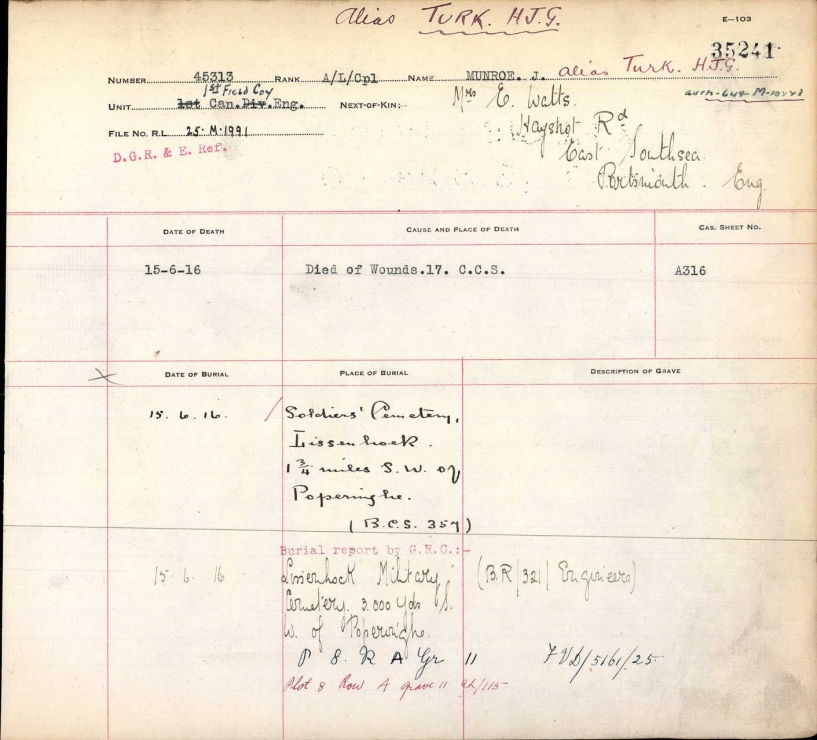 Alias TURK. H.J.G.
E-103
35241
NUMBER 45313 RANK A/L/Cpl NAME MUNROE. J. alias Turk. H.J.G.
auth-644-M-10228
1st Field Coy
UNIT 1st Can. Div. Eng. NEXT-OF-KIN:- Mrs E. Watts.
Hayshot Rd
FILE NO. R.L. 25-M-1991
East Southsea
D.G.R. & E. Ref.
Portsmouth. Eng
DATE OF DEATH CAUSE AND PLACE OF DEATH CAS. SHEET NO.
15-6-16 Died of Wounds.17. C.C.S. A316
X DATE OF BURIAL PLACE OF BURIAL DESCRIPTION OF GRAVE
15. 6. 16. / Soldiers' Cemetery,
Lissenhoek.
1 3/4 miles S.W. of
Poperinghe.
(B.C.S. 357)
Burial report by G.R.C.:-
15. 6. 16 Lissenhock Military (B.R/321/Engineers)
Cemetery. 3.000 yds S.
W. of Poperinghe.
P 8. R A Gr 11 FVD/5161/25
Plot 8 Row A grave 11